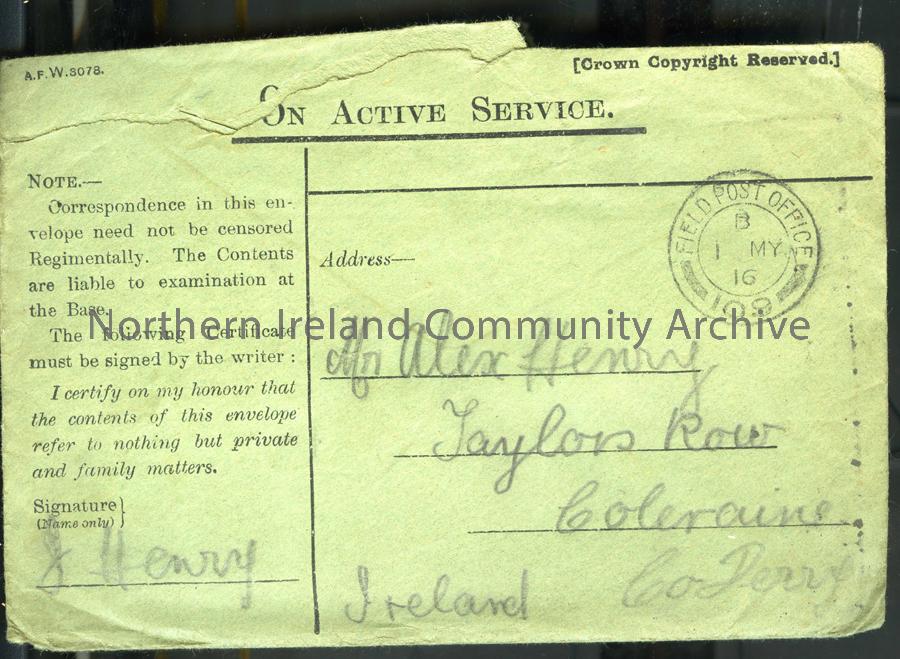 A.F.W.3078.
[Crown Copyright Reserved.]
ON ACTIVE SERVICE.
NOTE.—
Correspondence in this en-
velope need not be censored
Regimentally. The Contents
are liable to examination at
the Base.
The following Certificate
must be signed by the writer :
I certify on my honour that
the contents of this envelope
refer to nothing but private
and family matters.
Signature}
(Name only)
J Henry
FIELD POST OFFICE
B
1 MY
16
109
Address—
Mr Alex Henry
Taylors Row
Coleraine
Co Derry
Ireland
Northern Ireland Community Archive